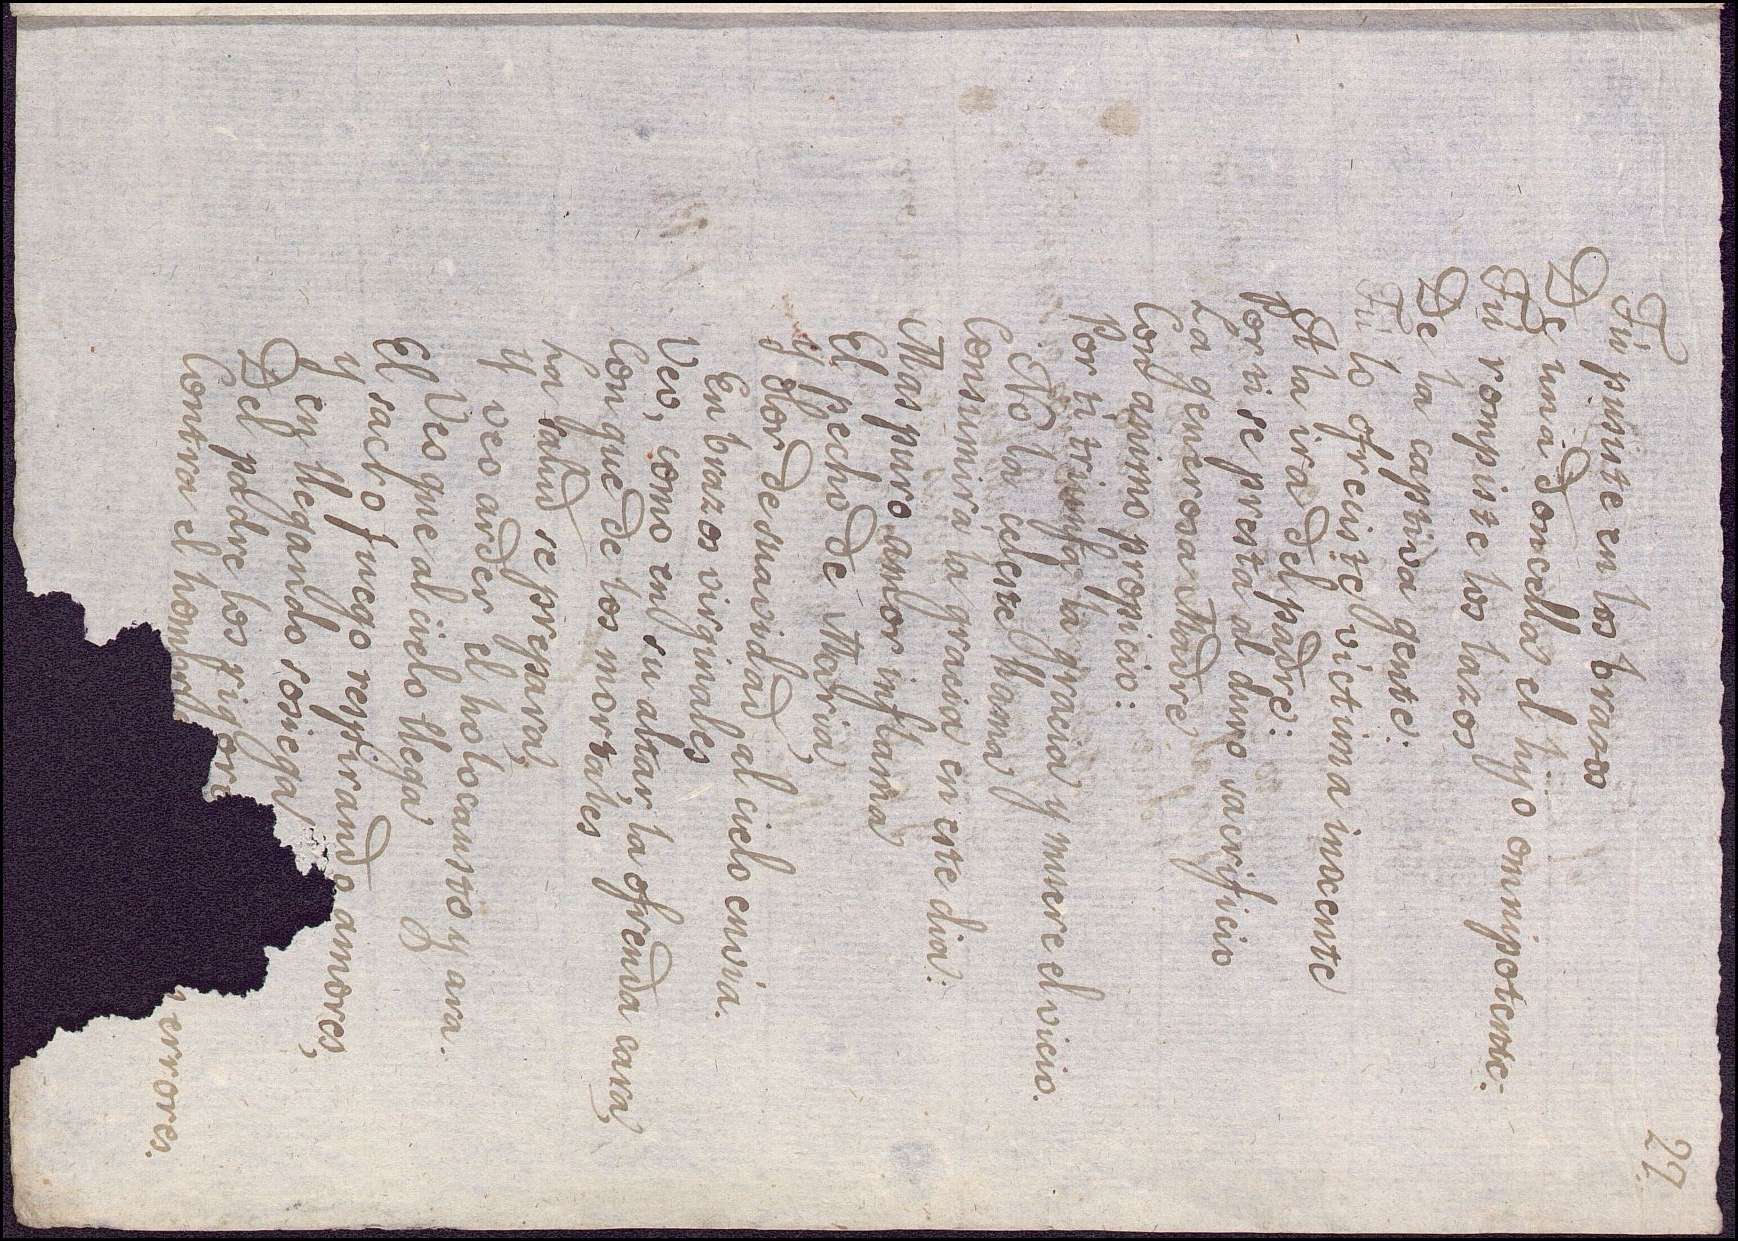 27.
Tú pusiste en los brazos
De una Doncella el hijo omnipotente.
Tú rompiste los lazos
De la captiva gente:
Tú lo ofreciste victima inocente
A la ira del padre:
Por ti se presta al duro sacrificio
La generosa Madre
Con animo propicio:
Por ti triunfa la gracia y muere el vicio.
No la celeste llama
Consumirá la gracia en este dia:
Mas puro amor inflama
El pecho de Maria,
y olor de suavidad al cielo envia.
En brazos virginales
Veo, como en su altar, la ofrenda cara,
Con que de los mortales
La salud se prepara,
y veo arder el holocausto y ara.
Veo que al cielo llega
El sacro fuego respirando amores,
y en llegando sosiega
Del padre los rigores
Contra el hombre errores.